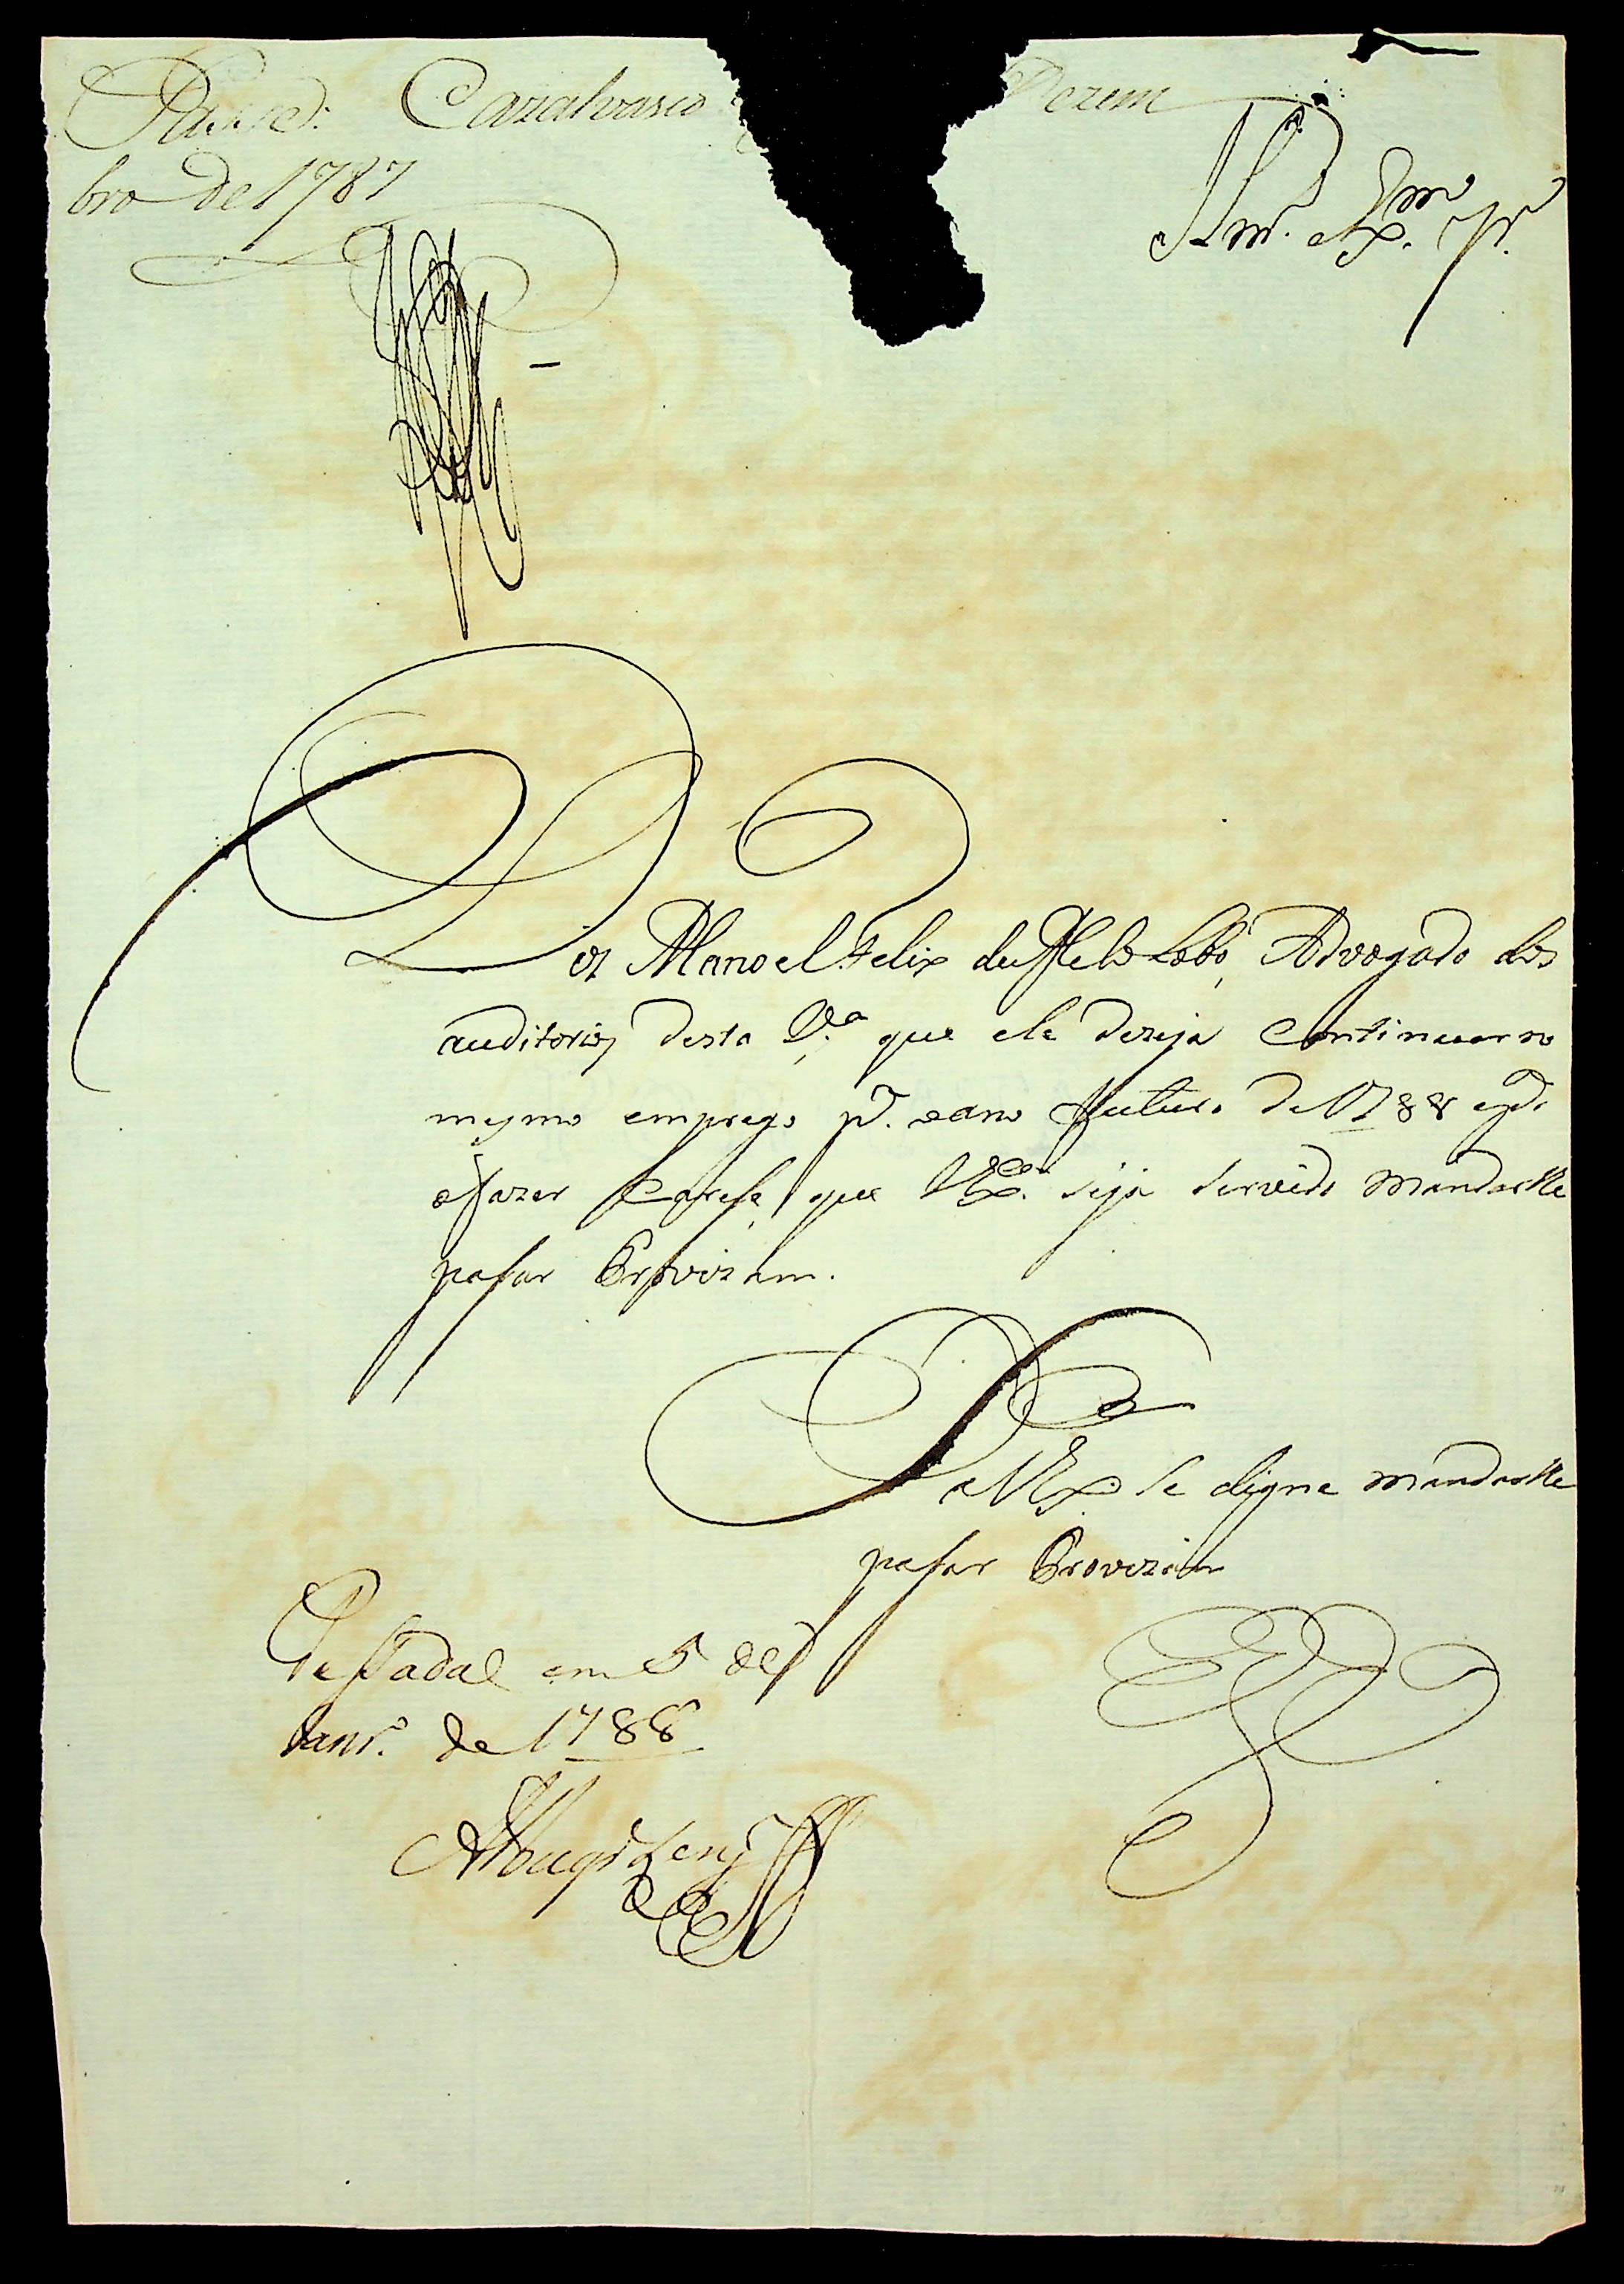 Passe: Cazalvasco Dezem
bro de 1787
Illmo. e Exmo. Snr.
Diz Manoel Felix de Mello Lobo, Advogado dos
auditorios desta Va. que ele dezeja continuar no
mesmo emprego pa. o ano futuro de 1788 e pa.
o fazer carese, que VExca. seja servido mandarlhe
pasar Provizam.
P
a VExa. se digne mandarlhe
pasar Provizam
Passada em 5 de
Janro. de 1788